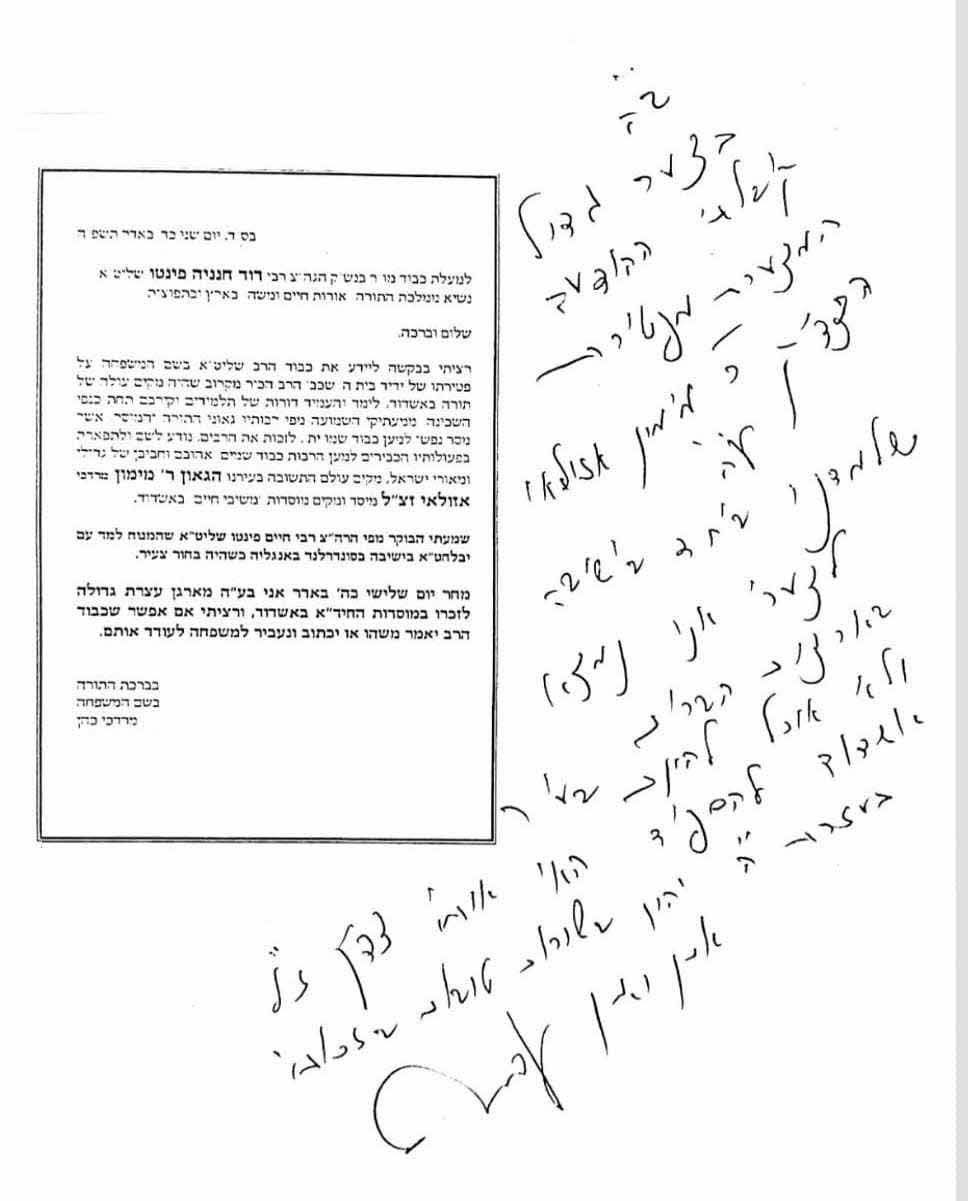 בס"ד, יום שני כד באדר תשפ"ה
למעלת כבוד מו"ר בנש"ק הגה"צ רבי דוד חנניה פינטו שליט"א
נשיא ממלכת התורה "אורות חיים ומשה" בארץ ובתפוצות
שלום וברכה.
רציתי בבקשה ליידע את כבוד הרב שליט"א בשם המשפחה על
פטירתו של ידיד בית ה' שכב' הרב הכיר מקרוב שהיה מקים עולה של
תורה באשדוד, לימד והעמיד דורות של תלמידים וקירבם תחת כנפי
השכינה ממעתיקי השמועה מפי רבותיו גאוני התורה והמוסר אשר
מסר נפשו למען כבוד שמו ית', לזכות את הרבים, נודע לשם ולתפארת
בפעולותיו הכבירים למען הרבות כבוד שמים אהובם וחביבן של גדולי
ומאורי ישראל, מקים עולם התשובה בעירנו הגאון ר' מימון מרדכי
אזולאי זצ"ל מיסד ומקים מוסדות "משיבי חיים" באשדוד.
שמעתי הבוקר מפי הרה"צ רבי חיים פינטו שליט"א שהמנוח למד עם
יבלחט"א בישיבה בסונדרלנד באנגליה כשהיה בחור צעיר.
מחר יום שלישי כה' באדר אני בע"ה מארגן עצרת גדולה
לזכרו במוסדות החיד"א באשדוד, ורציתי אם אפשר שכבוד
הרב יאמר משהו או יכתוב ונעביר למשפחה לעודד אותם.
בברכת התורה
בשם המשפחה
מרדכי כהן
ב"ה
בצער גדול
קבלתי ההודעה
המצערת מפטירת
הצדי' ר מימון אזולאי
ע"ה
שלמדנו ביחד בישיבה
לצערי אני נמצא
בארצות הברית
ולא אוכל להיות בעיר
אשדוד להספיד האי צדיק ז"ל
בעזרת ה' יהיו בשורות טובות
אמן ואמן